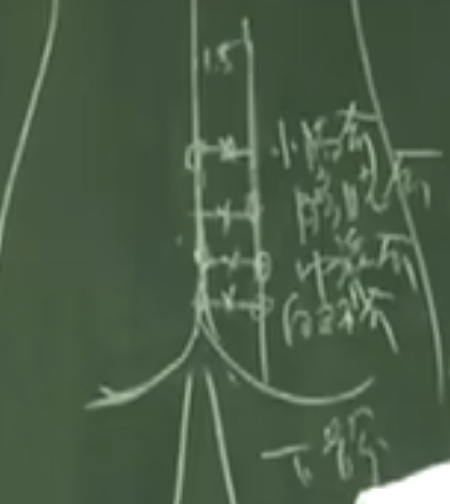 1.5
小肠俞
膀胱俞
中膂俞
白环俞
下髎